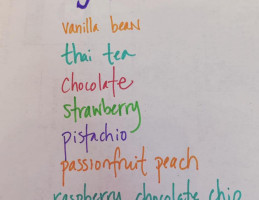 vanilla bean
thai tea
chocolate
strawberry
pistachio
passionfruit peach
raspberry chocolate chip